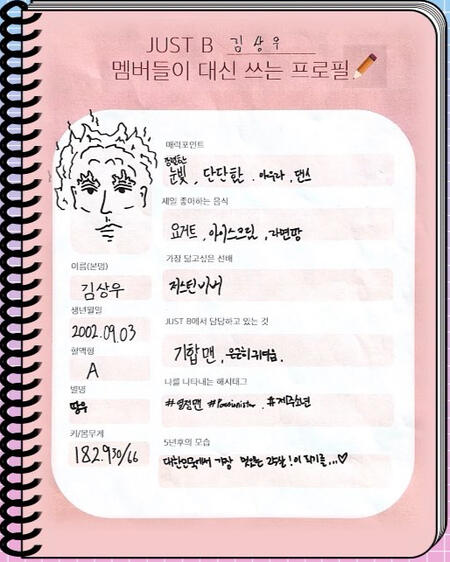 JUST B 김상우
멤버들이 대신 쓰는 프로필
매력포인트
눈빛, 단단함, 아우라, 댄스
제일 좋아하는 음식
요거트, 아이스크림, 라면땅
가장 닮고싶은 선배
저스틴 비버
JUST B에서 담당하고 있는 것
기합맨, 은은히 귀여움.
나를 나타내는 해시태그
#열정맨 #Passionista. #제주소년
5년후의 모습
대한민국에서 가장 멋있는 25살!이 되기를...♡
이름(본명)
김상우
생년월일
2002.09.03
혈액형
A
별명
땅우
키/몸무게
182.930/66